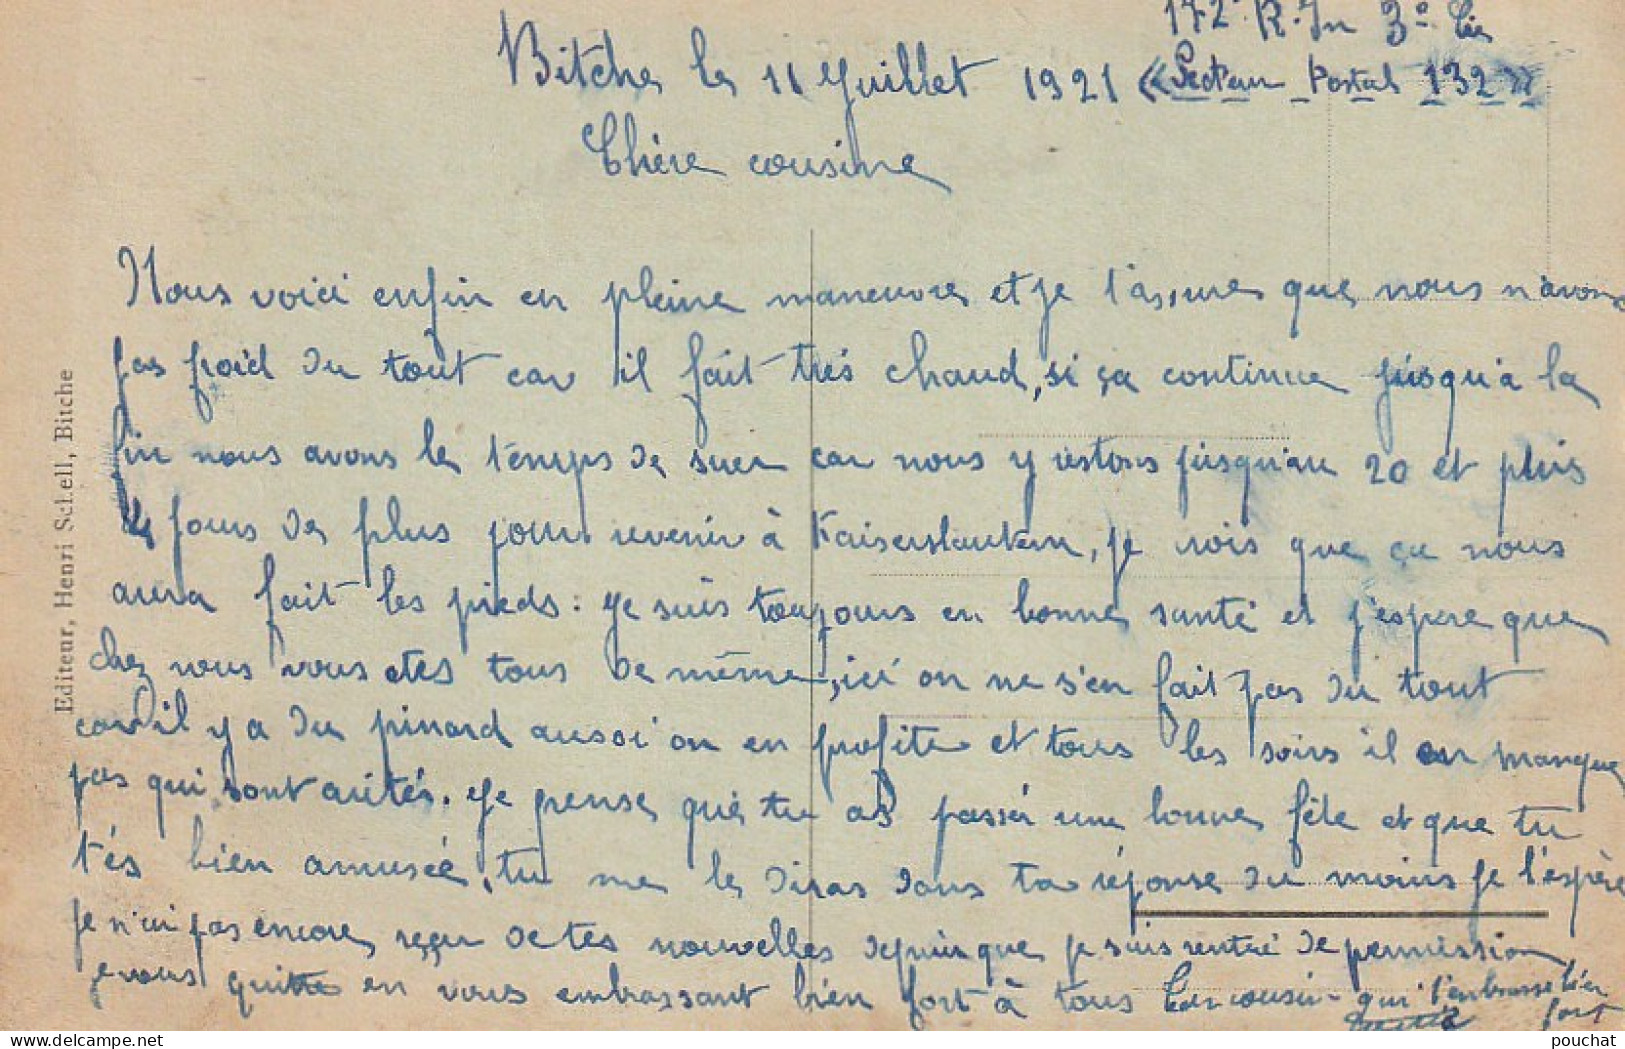 172e R. In 3e Cie
Bitche le 11 Juillet 1921 « Secteur Postal 132 »
Chère cousine
Nous voici enfin en pleine maneuvre et je t'assure que nous n'avons
pas froid du tout car il fait très chaud, si ça continue jusqu'a la
fin nous avons le temps de suer car nous y restons jusqu'au 20 et puis
4 jours de plus pour revenir à Kaiserslautern, je crois que ça nous
aura fait les pieds : Je suis toujours en bonne santé et j'espere que
chez vous vous etes tous de même, ici on ne s'en fait pas du tout
car il y a du pinard aussi on en profite et tous les soirs il en manque
pas qui sont cuités. Je pense que tu as passer une bonne fête et que tu
t'és bien amusée, tu me le diras dans ta réponse du moins je l'espère
je n'ai pas encore reçu de tes nouvelles depuis que je suis rentré de permission
je vous quitte en vous embrassant bien fort à tous Ton cousin qui t'embrasse bien
fort
Editeur, Henri Schell, Bitche
pouchat